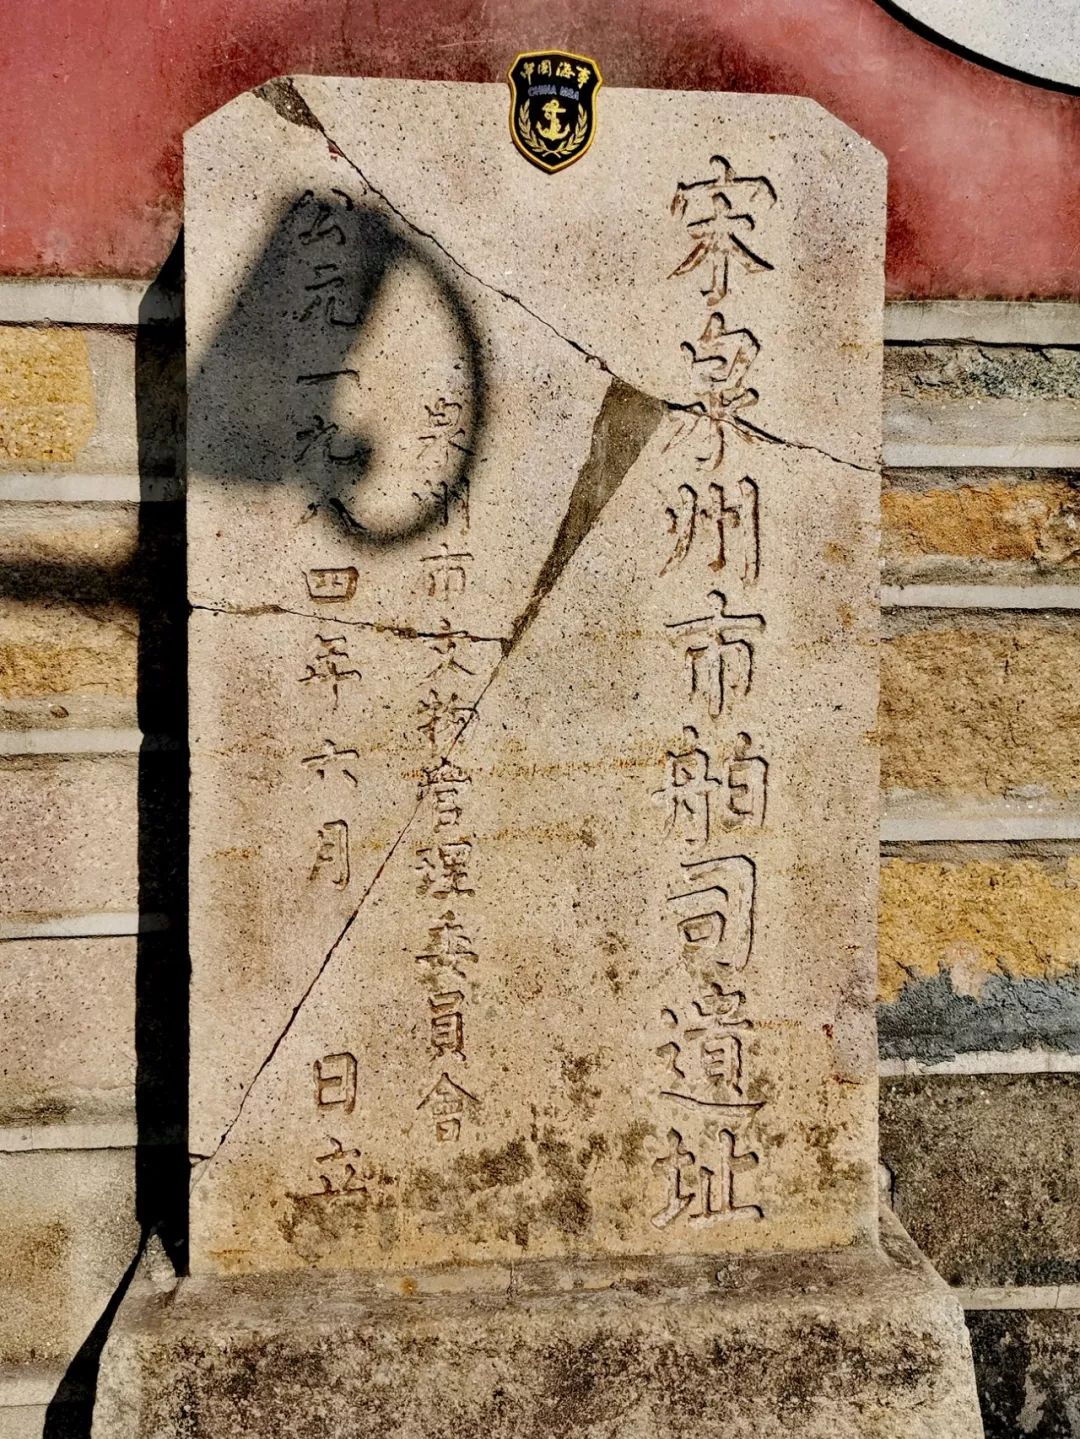 中国海事
CHINA MSA
宋泉州市舶司遺址
泉州市文物管理委員會
公元一九八四年六月 日立